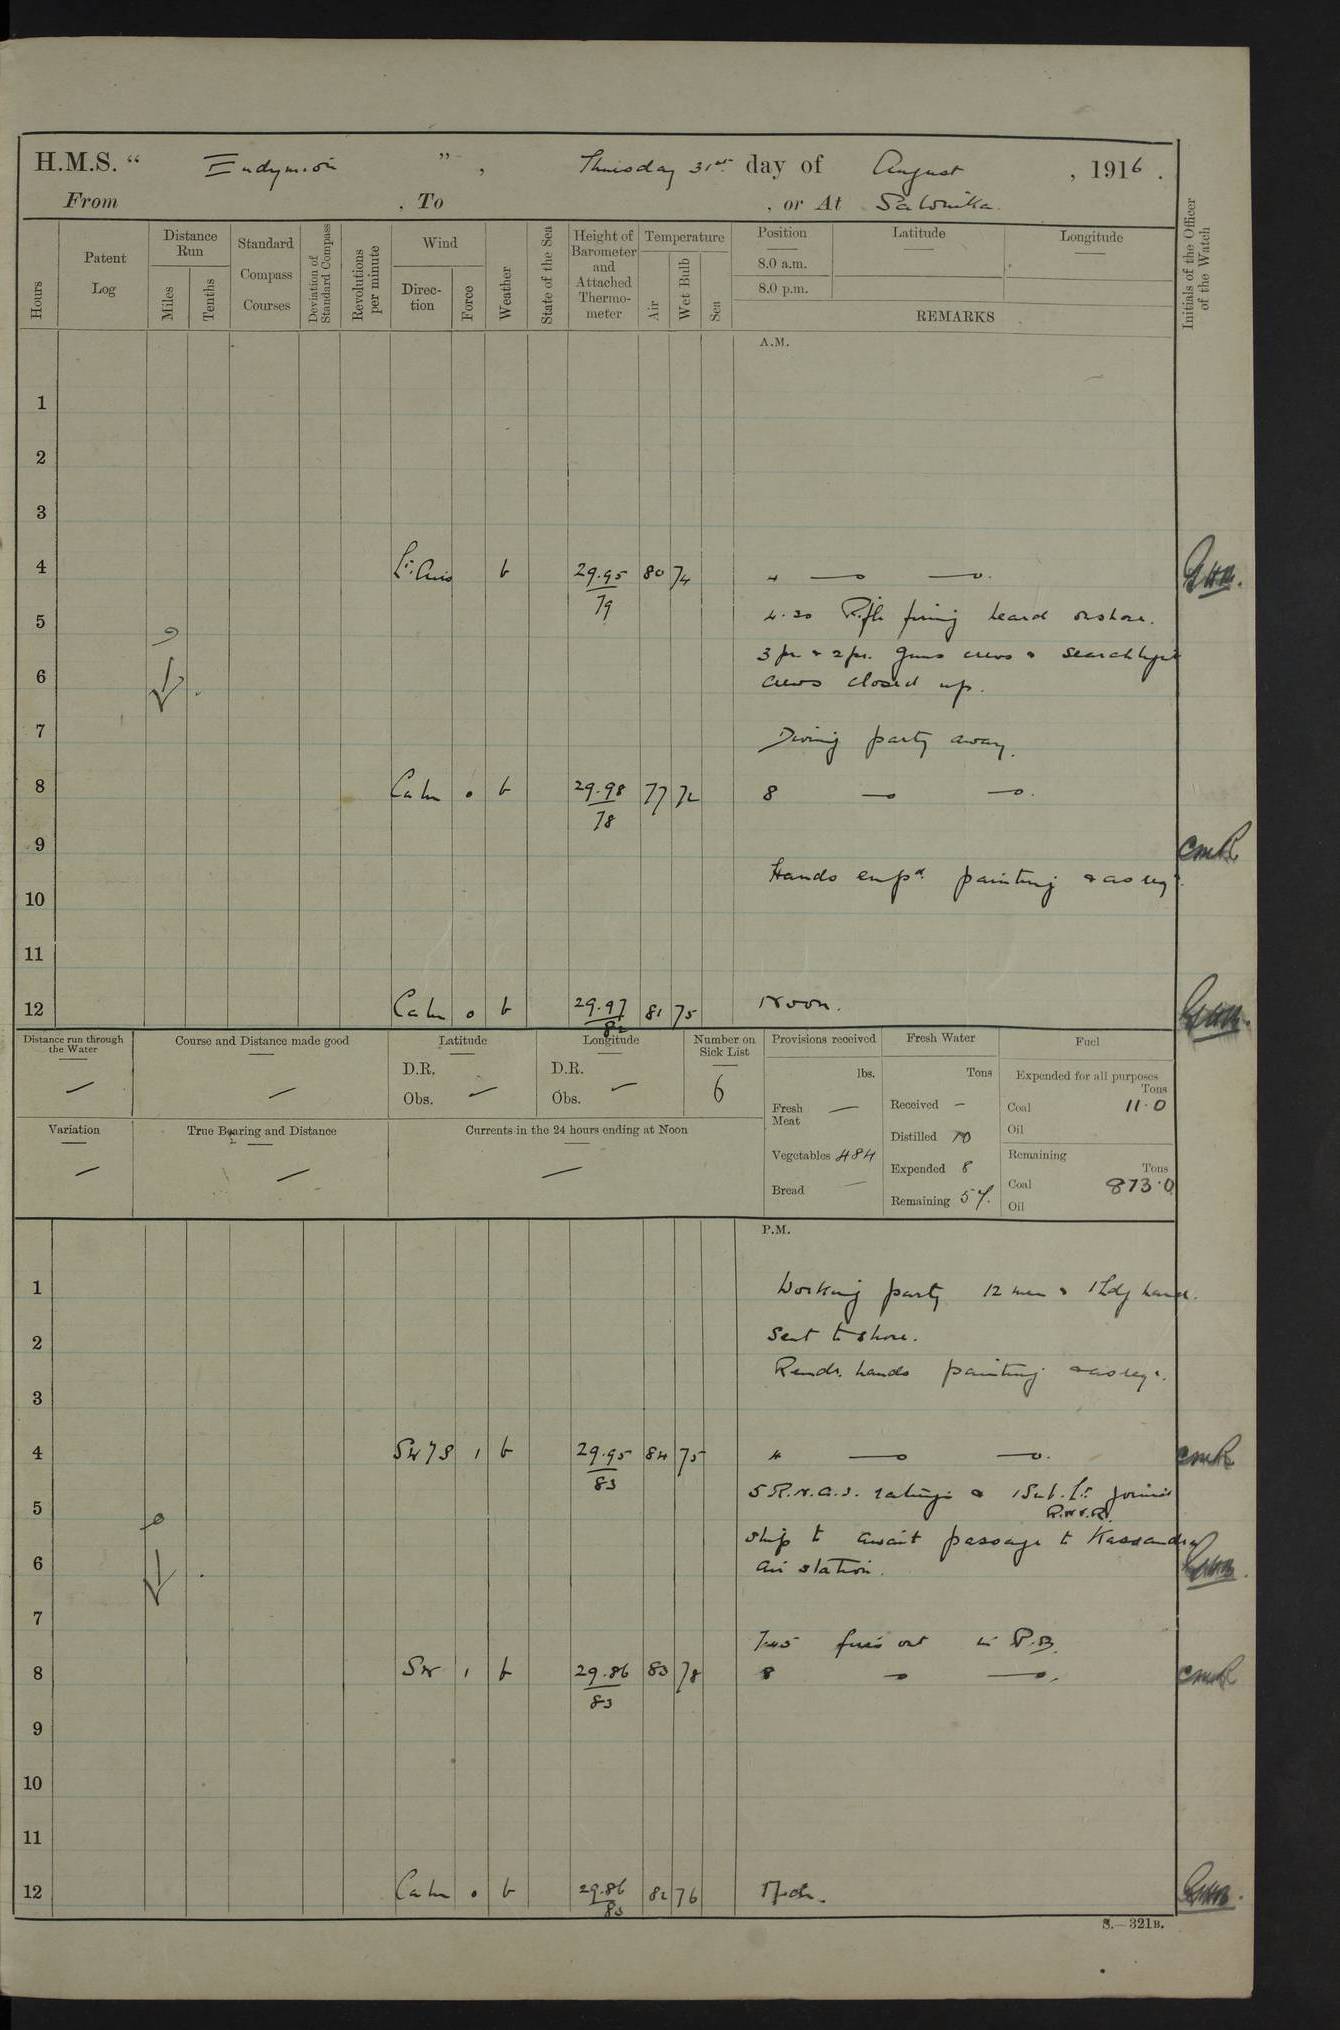 H.M.S. “ Endymion ” , Thursday 31st day of August , 1916 .
From , To , or At Salonika.
Hours
Patent Log
Distance Run
Miles
Tenths
Standard Compass Courses
Deviation of Standard Compass
Revolutions per minute
Wind
Direction
Force
Weather
State of the Sea
Height of Barometer and Attached Thermometer
Temperature
Air
Wet Bulb
Sea
Position
8.0 a.m.
8.0 p.m.
Latitude
Longitude
REMARKS
Initials of the Officer of the Watch
A.M.
1
2
3
4 Lt. Airs b 29.95 80 74 4
79
5 4.30 Rifle firing heard onshore.
3 pr & 2 pr. guns crews & searchlight
6 crews closed up.
7 Diving party away.
8 Calm 0 b 29.98 77 72 8
78
9 CMR
Hands empd. painting & as reqd.
10
11
12 Calm 0 b 29.97 81 75 Noon.
82
Distance run through the Water
Course and Distance made good
Latitude
D.R.
Obs.
Longitude
D.R.
Obs.
Number on Sick List
6
Provisions received
lbs.
Fresh Meat
Vegetables 484
Bread
Fresh Water
Tons
Received
Distilled 10
Expended 8
Remaining 57.
Fuel
Expended for all purposes
Tons
Coal 11.0
Oil
Remaining
Tons
Coal 873.0
Oil
Variation
True Bearing and Distance
Currents in the 24 hours ending at Noon
P.M.
1 Working party 12 men & 1 Ldg hand.
2 sent to shore.
Remdr. hands painting & as reqd.
3
4 SW b S 1 b 29.95 84 75 4 CMR
83
5 R.N.A.S. ratings & 1 Sub. Lt. joined
R.N.V.R.
5
ship to await passage to Kassandra
6 air station.
7
7.45 fires out in P.B.
8 SW 1 b 29.86 83 78 8 CMR
83
9
10
11
12 Calm 0 b 29.86 82 76 Mdt.
83
S.—321B.